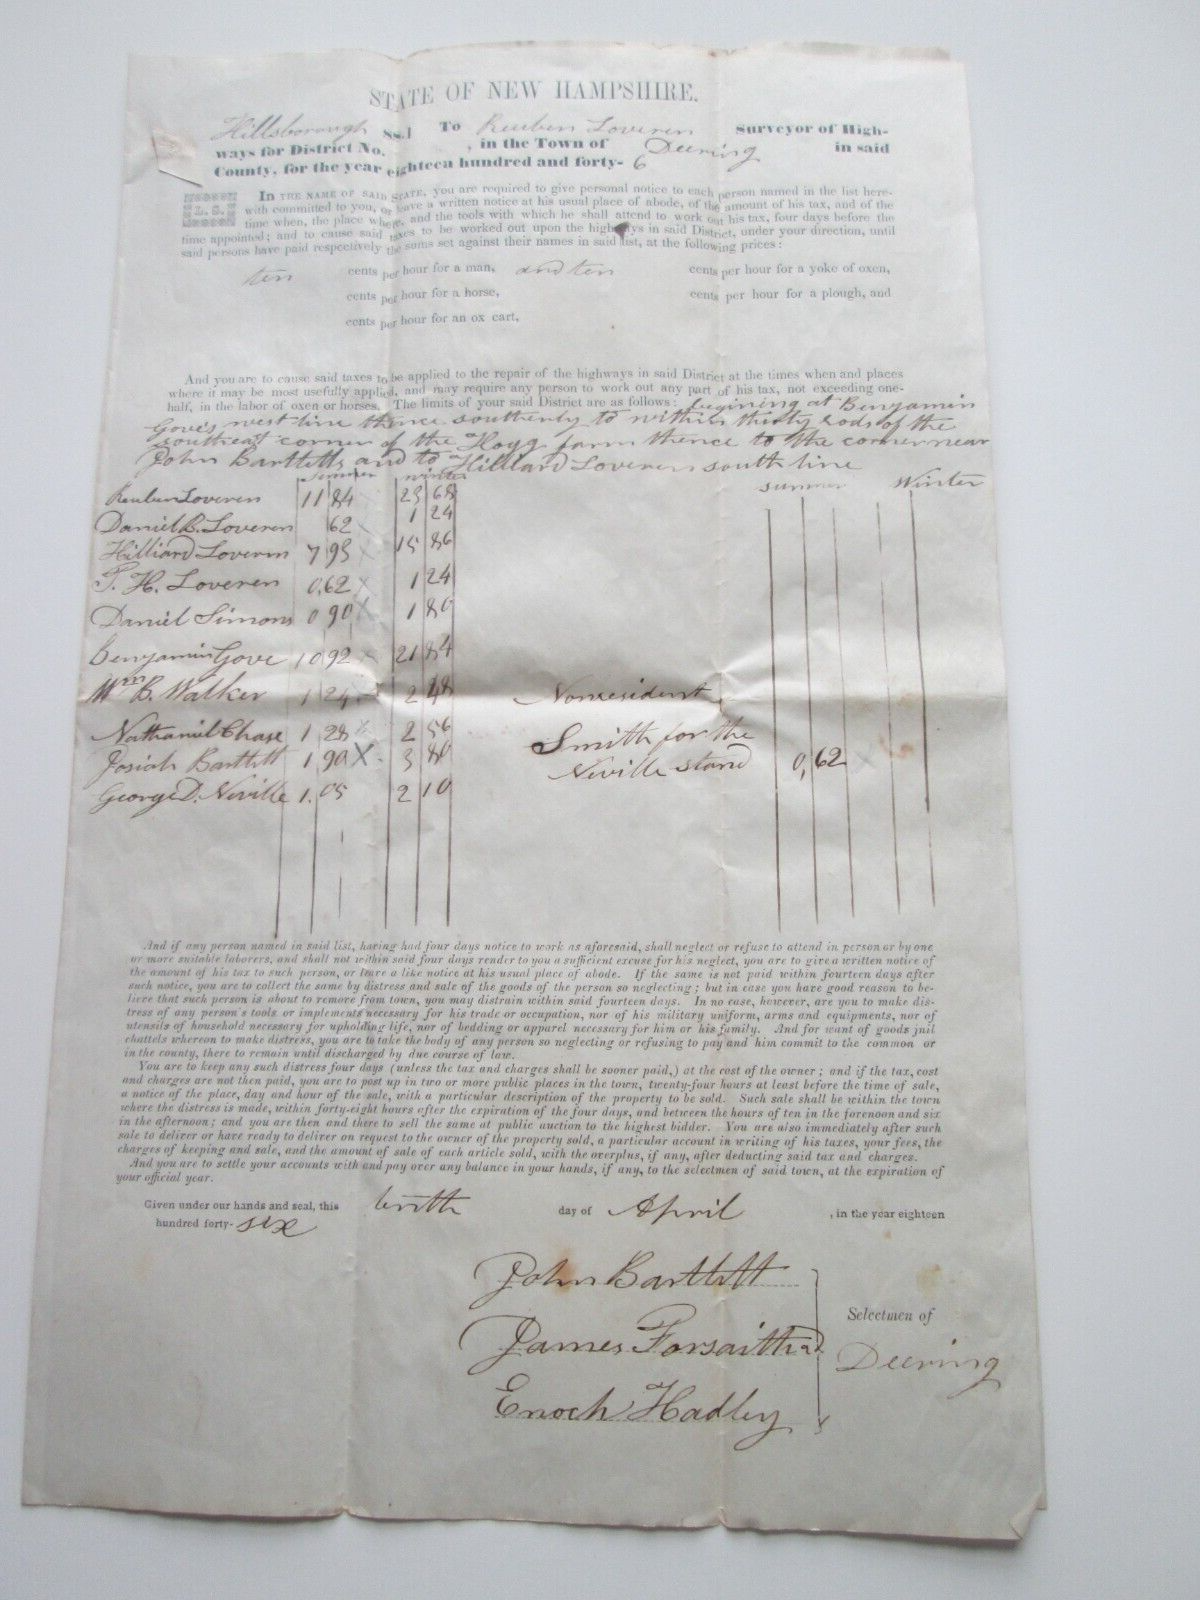 STATE OF NEW HAMPSHIRE.
Hillsborough ss.] To Reuben Loveren Surveyor of High-
ways for District No. , in the Town of Deering in said
County, for the year eighteen hundred and forty-6
L. S.
In the name of said State, you are required to give personal notice to each person named in the list here-
with committed to you, or leave a written notice at his usual place of abode, of the amount of his tax, and of the
time when, the place where, and the tools with which he shall attend to work out his tax, four days before the
time appointed; and to cause said taxes to be worked out upon the highways in said District, under your direction, until
said persons have paid respectively the sums set against their names in said list, at the following prices:
ten cents per hour for a man, and ten cents per hour for a yoke of oxen,
cents per hour for a horse, cents per hour for a plough, and
cents per hour for an ox cart,
And you are to cause said taxes to be applied to the repair of the highways in said District at the times when and places
where it may be most usefully applied, and may require any person to work out any part of his tax, not exceeding one-
half, in the labor of oxen or horses. The limits of your said District are as follows: begining at Benjamin
Gove's west line thence southerly to within thirty rods of the
southeast corner of the Hogg farm thence to the corner near
John Bartletts and to Hilliard Loveren south line
summer winter summer Winter
Reuben Loveren 11 84 23 68
Daniel B. Loveren 62 1 24
Hilliard Loveren 7 93 X 15 86
T. H. Loveren 0,62 X 1 24
Daniel Simons 0 90 X 1 80
Benjamin Gove 10 92 X 21 84
Wm B. Walker 1 24 X 2 48 Nonresident
Nathaniel Chase 1 28 X 2 56 Smith for the
Josiah Bartlett 1 90 X 3 80 Neville stand 0,62 X
George D. Neville 1.05 2 10
And if any person named in said list, having had four days notice to work as aforesaid, shall neglect or refuse to attend in person or by one
or more suitable laborers, and shall not within said four days render to you a sufficient excuse for his neglect, you are to give a written notice of
the amount of his tax to such person, or leave a like notice at his usual place of abode. If the same is not paid within fourteen days after
such notice, you are to collect the same by distress and sale of the goods of the person so neglecting; but in case you have good reason to be-
lieve that such person is about to remove from town, you may distrain within said fourteen days. In no case, however, are you to make dis-
tress of any person's tools or implements necessary for his trade or occupation, nor of his military uniform, arms and equipments, nor of
utensils of household necessary for upholding life, nor of bedding or apparel necessary for him or his family. And for want of goods jail
chattels whereon to make distress, you are to take the body of any person so neglecting or refusing to pay and him commit to the common or
in the county, there to remain until discharged by due course of law.
You are to keep any such distress four days (unless the tax and charges shall be sooner paid,) at the cost of the owner; and if the tax, cost
and charges are not then paid, you are to post up in two or more public places in the town, twenty-four hours at least before the time of sale,
a notice of the place, day and hour of the sale, with a particular description of the property to be sold. Such sale shall be within the town
where the distress is made, within forty-eight hours after the expiration of the four days, and between the hours of ten in the forenoon and six
in the afternoon; and you are then and there to sell the same at public auction to the highest bidder. You are also immediately after such
sale to deliver or have ready to deliver on request to the owner of the property sold, a particular account in writing of his taxes, your fees, the
charges of keeping and sale, and the amount of sale of each article sold, with the overplus, if any, after deducting said tax and charges.
And you are to settle your accounts with and pay over any balance in your hands, if any, to the selectmen of said town, at the expiration of
your official year.
Given under our hands and seal, this day of April , in the year eighteen
hundred forty-six
John Bartlett
James Forsaith
Enoch Hadley
Selectmen of
Deering